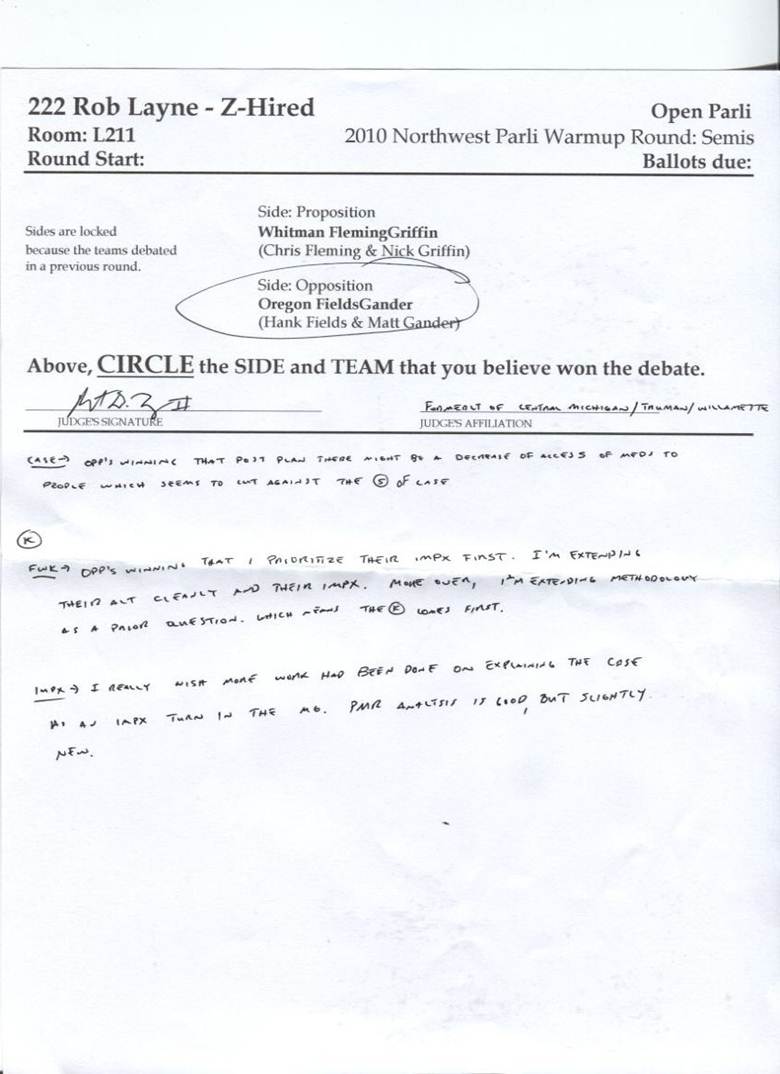 222 Rob Layne - Z-Hired
Open Parli
Room: L211
2010 Northwest Parli Warmup Round: Semis
Round Start:
Ballots due:
Sides are locked
because the teams debated
in a previous round.
Side: Proposition
Whitman FlemingGriffin
(Chris Fleming & Nick Griffin)
Side: Opposition
Oregon FieldsGander
(Hank Fields & Matt Gander)
Above, CIRCLE the SIDE and TEAM that you believe won the debate.
FORMERLY OF CENTRAL MICHIGAN/TRUMAN/WILLAMETTE
JUDGE'S SIGNATURE
JUDGE'S AFFILIATION
CASE → OPP'S WINNING THAT POST PLAN THERE MIGHT BE A DECREASE OF ACCESS OF MEDS TO
PEOPLE WHICH SEEMS TO CUT AGAINST THE Ⓢ OF CASE
Ⓚ
FWK → OPP'S WINNING THAT I PRIORITIZE THEIR IMPX FIRST. I'M EXTENDING
THEIR ALT CLEANLY AND THEIR IMPX. MORE OVER, I'M EXTENDING METHODOLOGY
AS A PRIOR QUESTION. WHICH MEANS THE Ⓚ COMES FIRST.
IMPX → I REALLY WISH MORE WORK HAD BEEN DONE ON EXPLAINING THE CASE
AS AN IMPX TURN IN THE MG. PMR ANALYSIS IS GOOD, BUT SLIGHTLY
NEW.